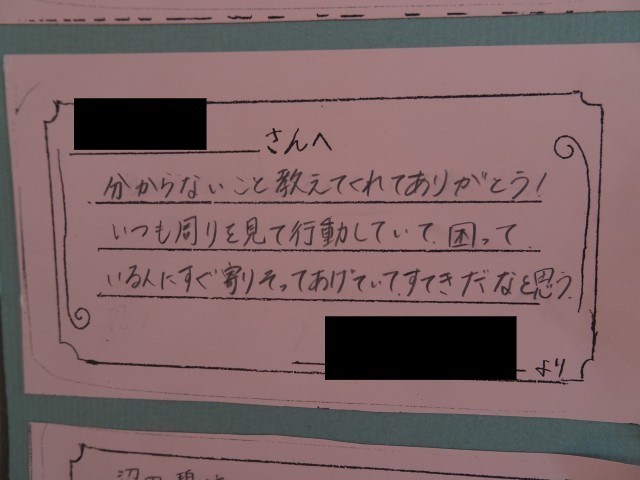 さんへ
分からないこと教えてくれてありがとう!
いつも周りを見て行動していて、困って
いる人にすぐ寄りそってあげていてすてきだなと思う
より